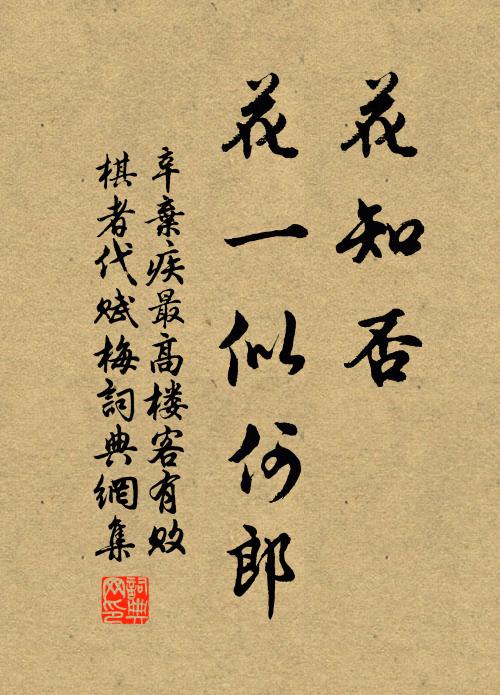 花知否
花一似何郎
辛棄疾最高楼客有败
棋者代赋梅詞典網集
詞典
网印